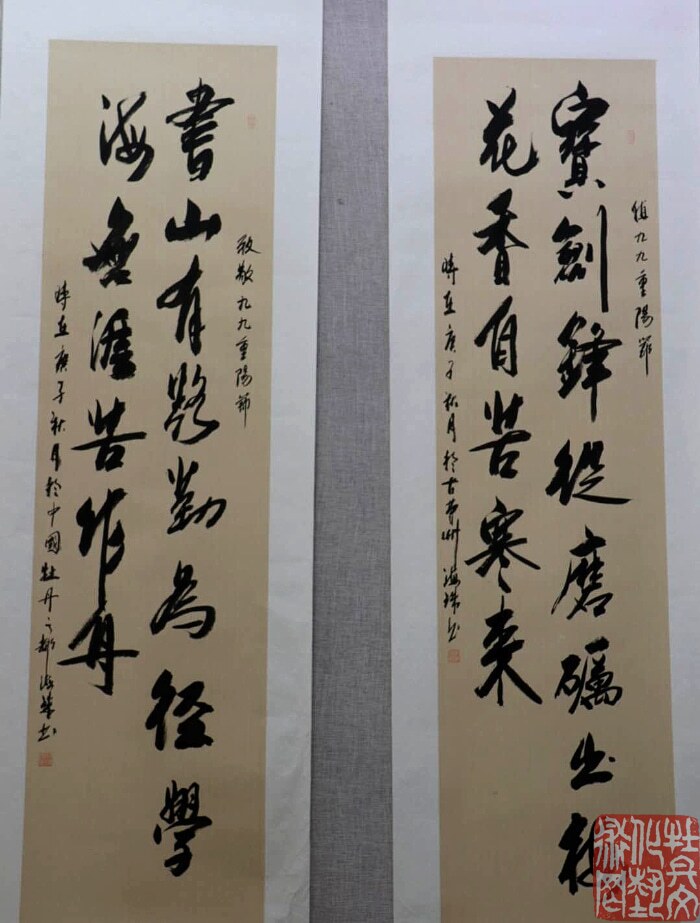 九九重陽節
寶劍鋒從磨礪出梅
花香自苦寒來
時在庚子秋月於古曹州海珠书
致敬九九重陽節
書山有路勤為徑學
海無涯苦作舟
時在庚子秋月於中國牡丹之都海珠书
牡丹文